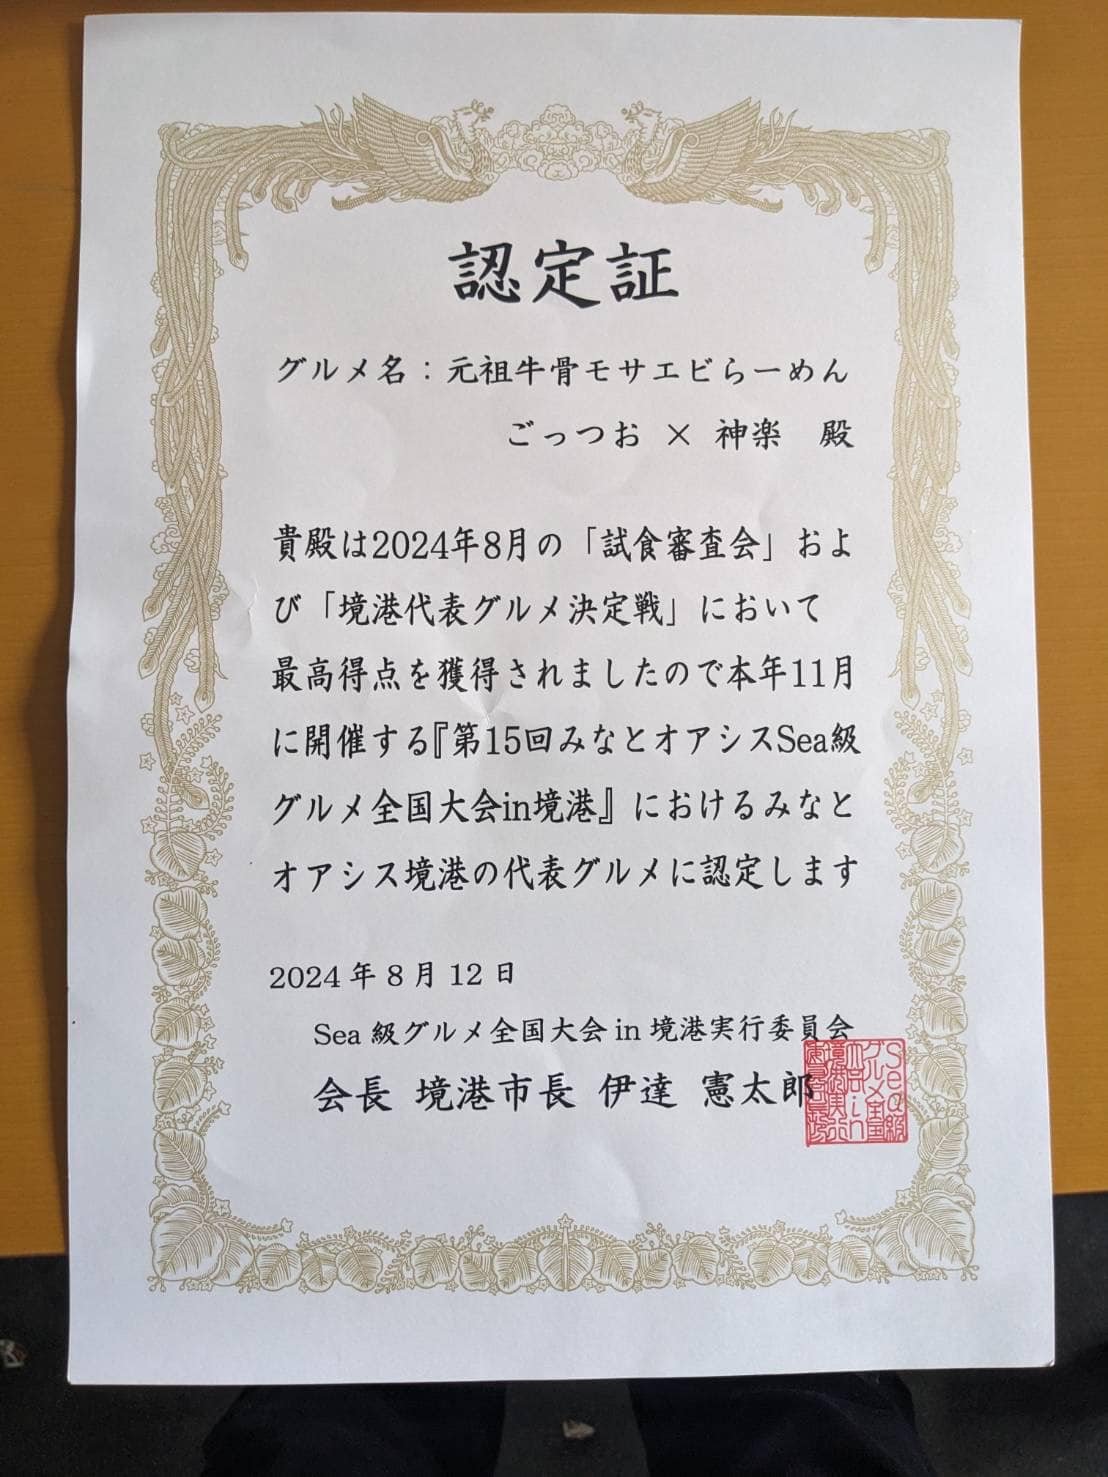 認定証
グルメ名：元祖牛骨モサエビらーめん
ごっつお × 神楽　殿
貴殿は2024年8月の「試食審査会」およ
び「境港代表グルメ決定戦」において
最高得点を獲得されましたので本年11月
に開催する『第15回みなとオアシスSea級
グルメ全国大会in境港』におけるみなと
オアシス境港の代表グルメに認定します
2024年8月12日
Sea級グルメ全国大会in境港実行委員会
会長 境港市長 伊達 憲太郎
Sea級
グルメ全国
大会in
境港実行